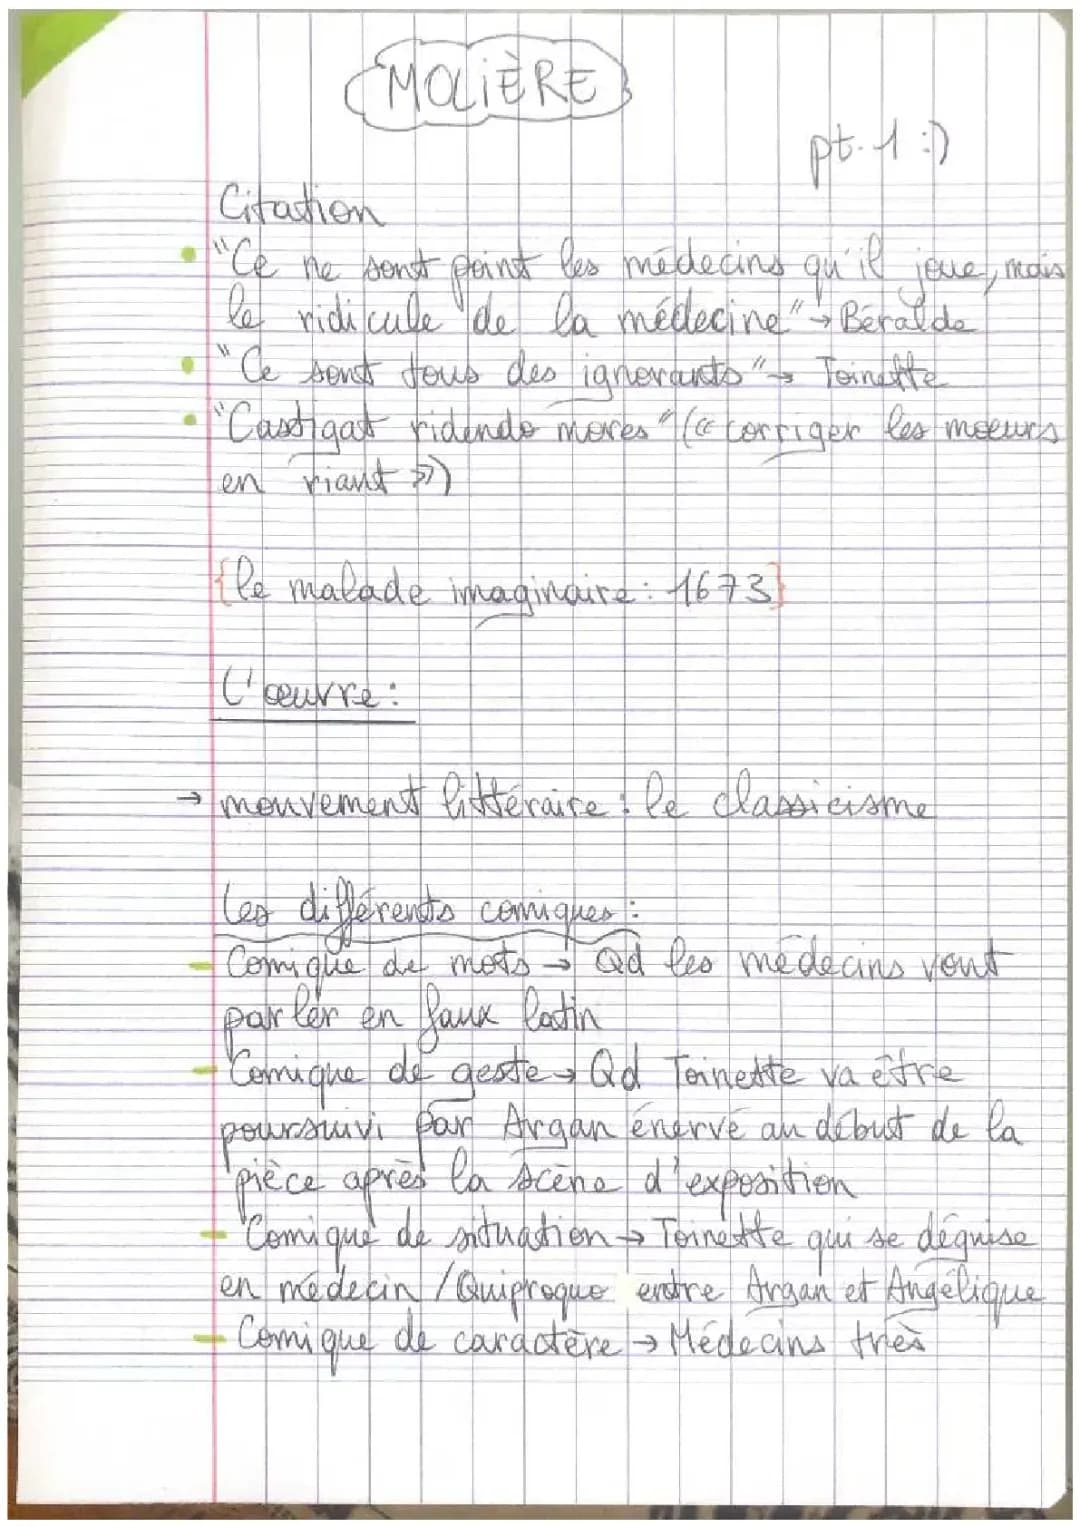 MOLIÈRE
pt. 1 :)
Citation
"Ce ne sont point les médecins qu'il joue, mais
le ridicule de la médecine" → Béralde
"Ce sont tous des ignorants" → Toinette
"Castigat ridendo mores" (« corriger les moeurs
en riant »)
{le malade imaginaire : 1673}
L'œuvre :
→ mouvement littéraire : le classicisme
Les différents comiques :
- Comique de mots → Qd les médecins vont
parler en faux latin
- Comique de geste → Qd Toinette va être
poursuivi par Argan énervé au début de la
pièce après la scène d'exposition
- Comique de situation → Toinette qui se déguise
en médecin / Quiproquo entre Argan et Angélique
- Comique de caractère → Médecins très